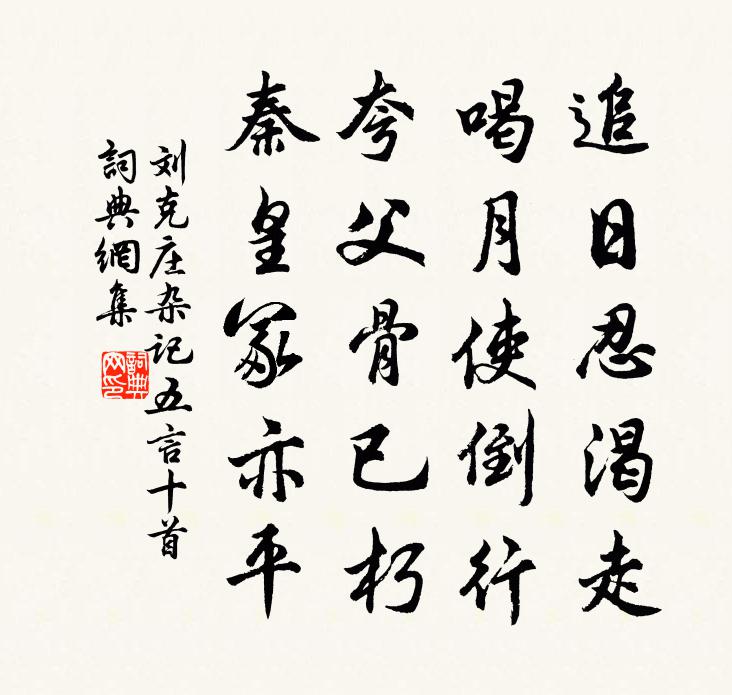 追日忍渴走
喝月使倒行
夸父骨已朽
秦皇冢亦平
刘克庄杂记五言十首
詞典網集
詞典网印